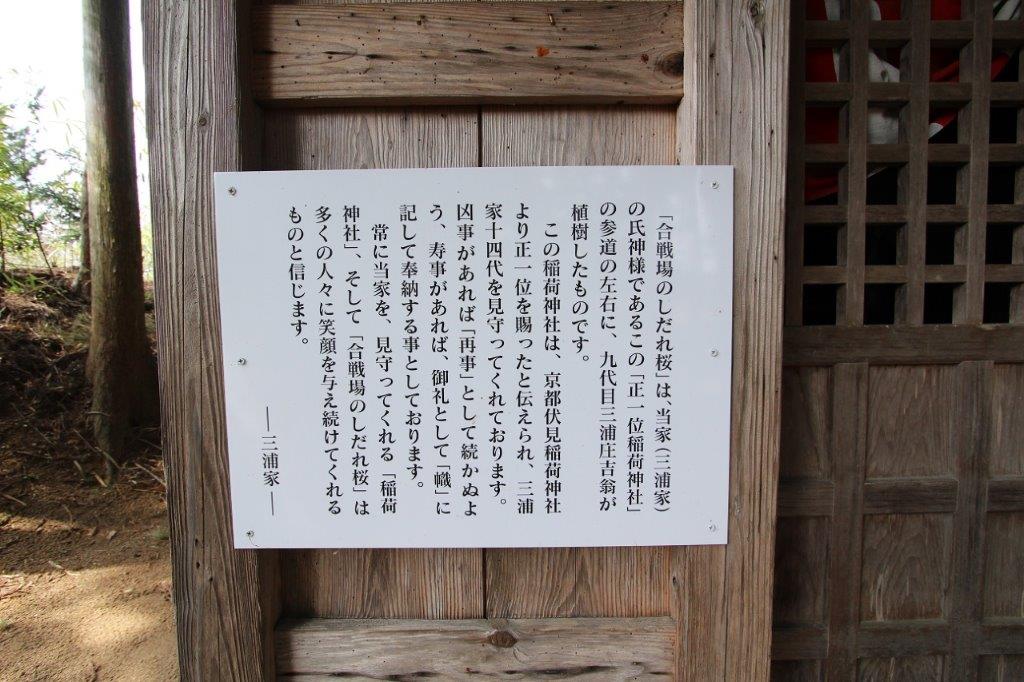 「合戦場のしだれ桜」は、当家（三浦家）
の氏神様であるこの「正一位稲荷神社」
の参道の左右に、九代目三浦庄吉翁が
植樹したものです。
この稲荷神社は、京都伏見稲荷神社
より正一位を賜ったと伝えられ、三浦
家十四代を見守ってくれております。
凶事があれば「再事」として続かぬよ
う、寿事があれば、御礼として「幟」に
記して奉納する事としております。
常に当家を、見守ってくれる「稲荷
神社」、そして「合戦場のしだれ桜」は
多くの人々に笑顔を与え続けてくれる
ものと信じます。
―三浦家―